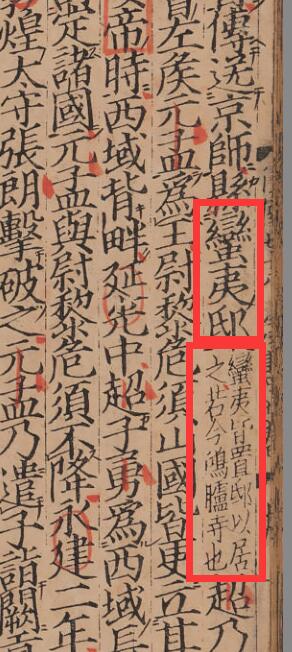 傳送京師縣蠻夷邸
蠻夷皆置邸以居
之若今鴻臚寺也
超乃
左矦元孟爲王尉黎危須山國皆更立其
帝時西域背畔延光中超子勇爲西域長
定諸國元孟與尉黎危須不降永建二年
煌大守張朗擊破之元孟乃遣子詣闕